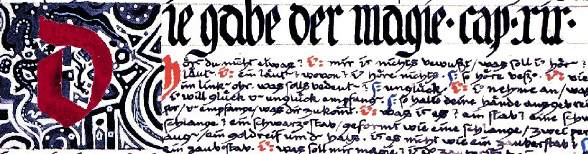 Die gabe der magie. cap. xix.
hör du nicht etwas? mir ist nichts bewußt, was soll i hör
läut. ein läut? wovon? i höre nichts. so höre beß.
im link ohr. was soll bedeut? unglück. i nehme an, was
will glück u unglück empfang. so halte deine hände
u empfang was dir zukomt. was ist es? ein stab? eine sch
schlange? ein schwarz stab, geformt wie eine schlange, zwei per
aug, ein goldreif um d hals. ist es nicht wie ein zauberstab?
ein zauberstab. was soll mir magie?